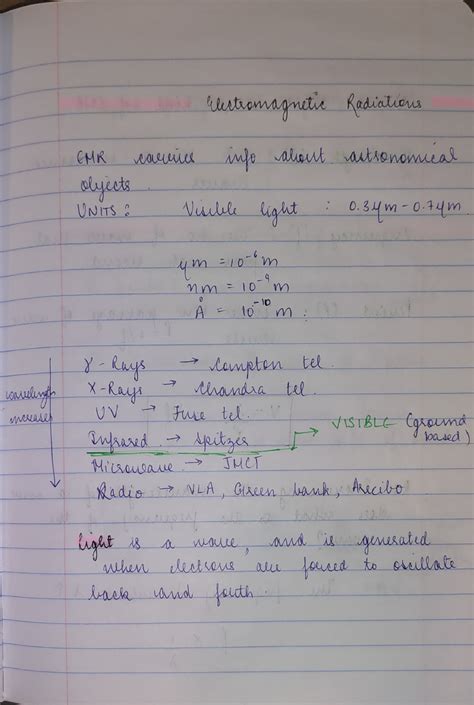 Electromagnetic Radiations
EMR carries info about astronomical
objects.
UNITS : Visible light : 0.3 ym - 0.7 ym
ym = 10^-6 m
nm = 10^-9 m
Å = 10^-10 m :
wavelength
increases
γ-Rays → Compton tel.
X-Rays → Chandra tel.
UV → Fuse tel.
Infrared → Spitzer → VISIBLE (ground
based)
Microwave → JMCT
Radio → VLA, Green bank, Arecibo
light is a wave, and is generated
when electrons are forced to oscillate
back and forth.